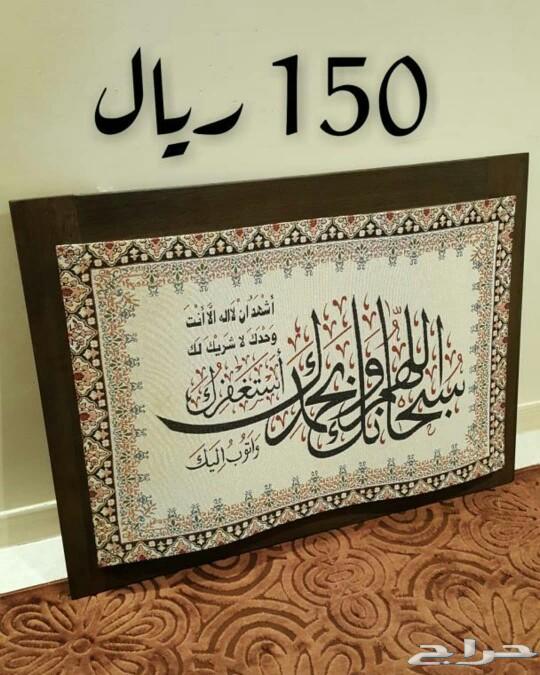 150 ريال
سُبحانك اللهمَّ وبحمدك
أشهد أن لا اله الا أنت
وحدك لا شريك لك
أستغفرك
وأتوب إليك
حراج